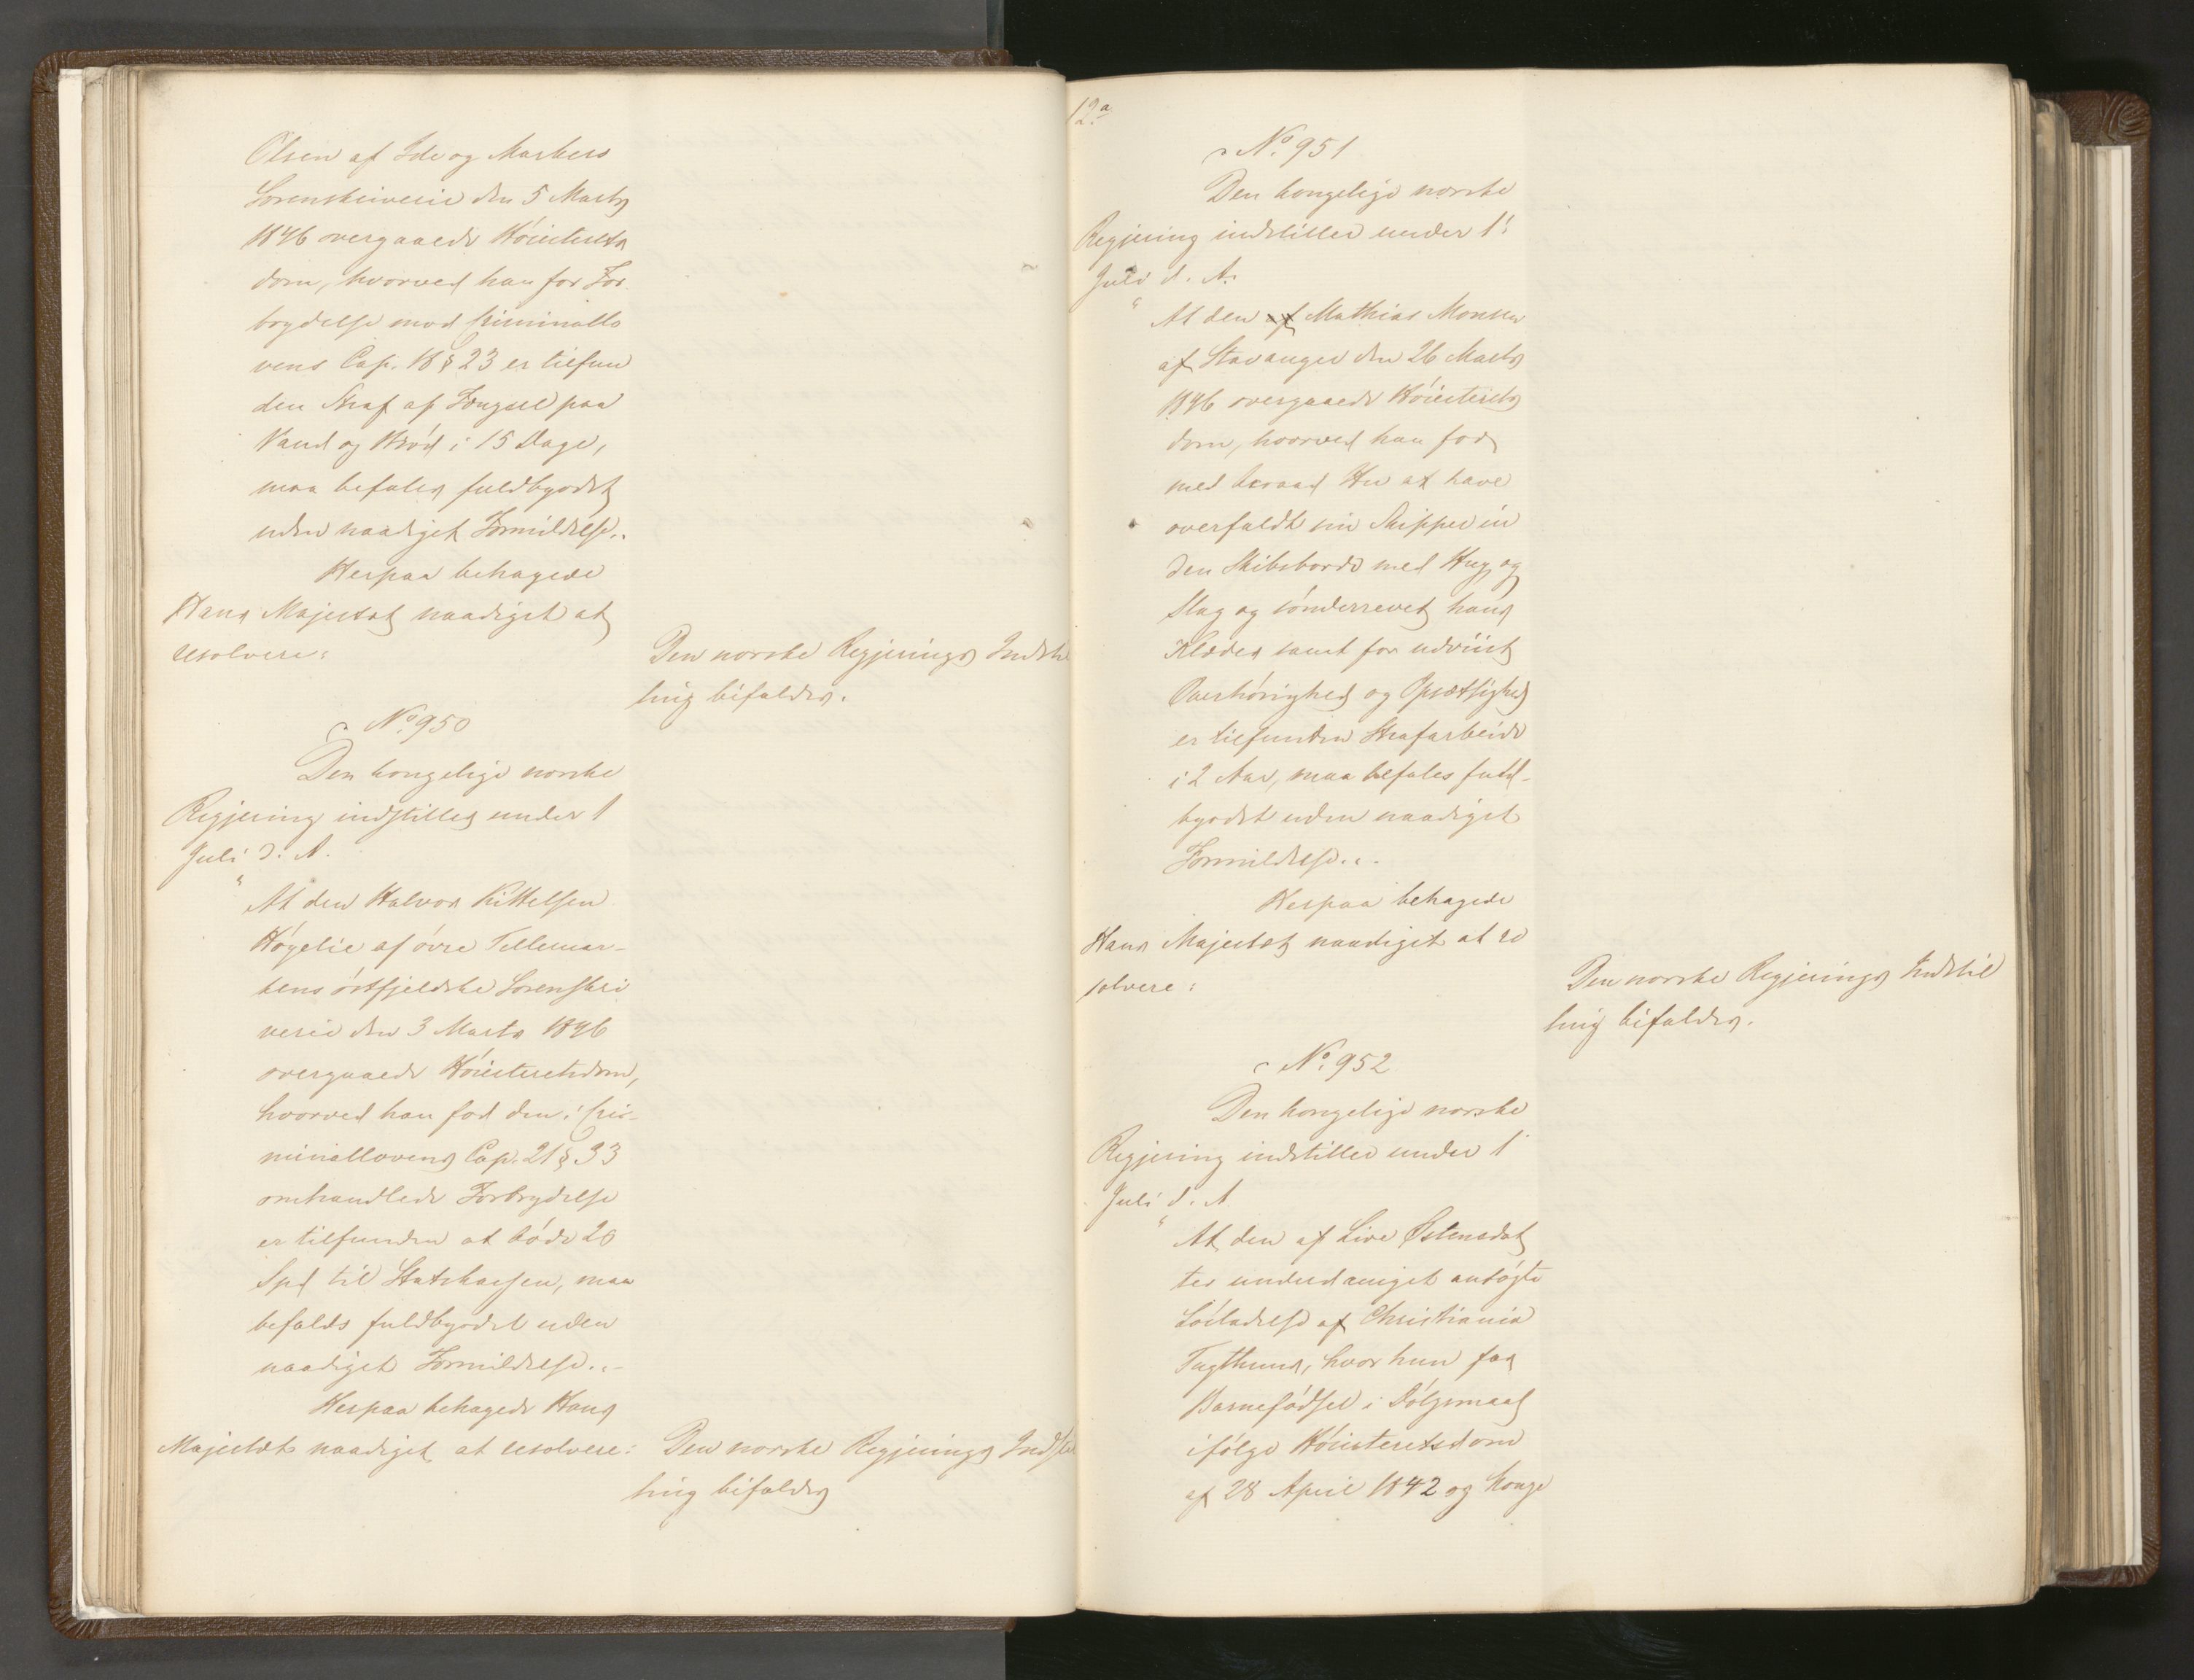 Olsen af Ide og Markers
Sorenskriverie den 5 Marts
1846 overgaaede Höiesterets
dom, hvorved han for For
brydelse mod Criminallo
vens Cap. 18 § 23 er tilfun
den Straf af Fængsel paa
Vand og Bröd i 15 Dage,
maa befales fuldbyrdet
uden naadigst Formildelse.
Herpaa behagede
Hans Majestæt naadigst at
resolvere:
Den norske Regjerings Indstil
ling bifaldes.
No. 950
Den kongelige norske
Regjering indstiller under 1
Juli d. A.
"At den Halvor Kittelsen
Högelie af övre Tellemar-
kens östfjeldske Sorenskri
verie den 3 Marts 1846
overgaaede Höiesteretsdom,
hvorved han for den i Cri-
minallovens Cap. 21 § 33
omhandlede Forbrydelse
er tilfunden at böde 20
Spd til Statskassen, maa
befales fuldbyrdet uden
naadigst Formildelse.
Herpaa behagede Hans
Majestæt naadigst at resolvere:
Den norske Regjerings Indstil
ling bifaldes
12a
No. 951
Den kongelige norske
Regjering indstiller under 1
Juli d. A.
"At den af Mathias Monsen
af Stavanger den 26 Marts
1846 overgaaede Höiesterets
dom, hvorved han for
med beraad Hu at have
overfaldt sin Skipper in
den Skibsborde med Hug og
Slag og sönderrevet hans
Klæder samt for udviist
Overhörighed og Opsætsighed
er tilfunden Strafarbeide
i 2 Aar, maa befales fuld-
byrdet uden naadigst
Formildelse.
Herpaa behagede
Hans Majestæt naadigst at re
solvere:
Den norske Regjerings Indstil
ling bifaldes.
No. 952
Den kongelige norske
Regjering indstiller under 1
Juli d. A
"At den af Live Østensdat
ter underdanigst ansögte
Lösladelse af Christiania
Tugthuus, hvor hun for
Barnefödsel i Dölgsmaal
ifölge Höiesteretsdom
af 28 April 1842 og Konge